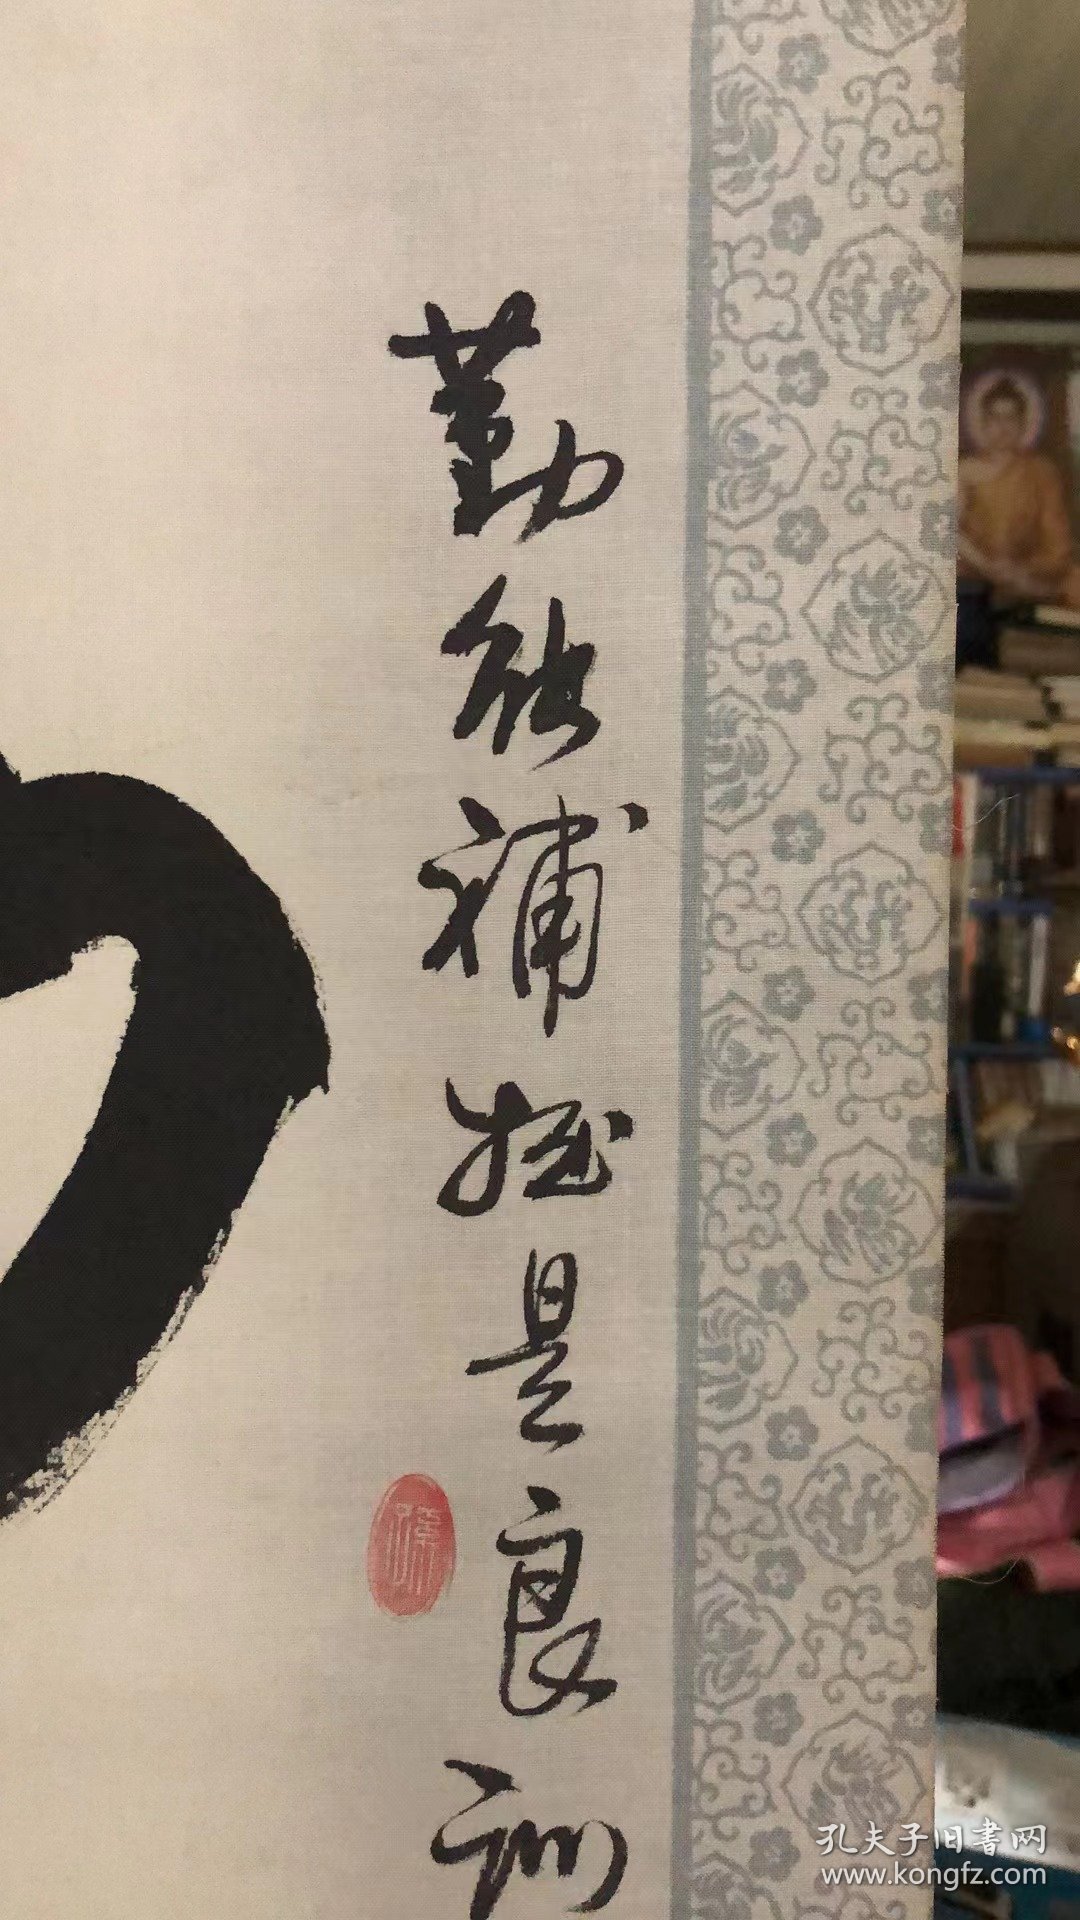 勤能補拙是良訓
孔夫子旧書网
www.kongfz.com